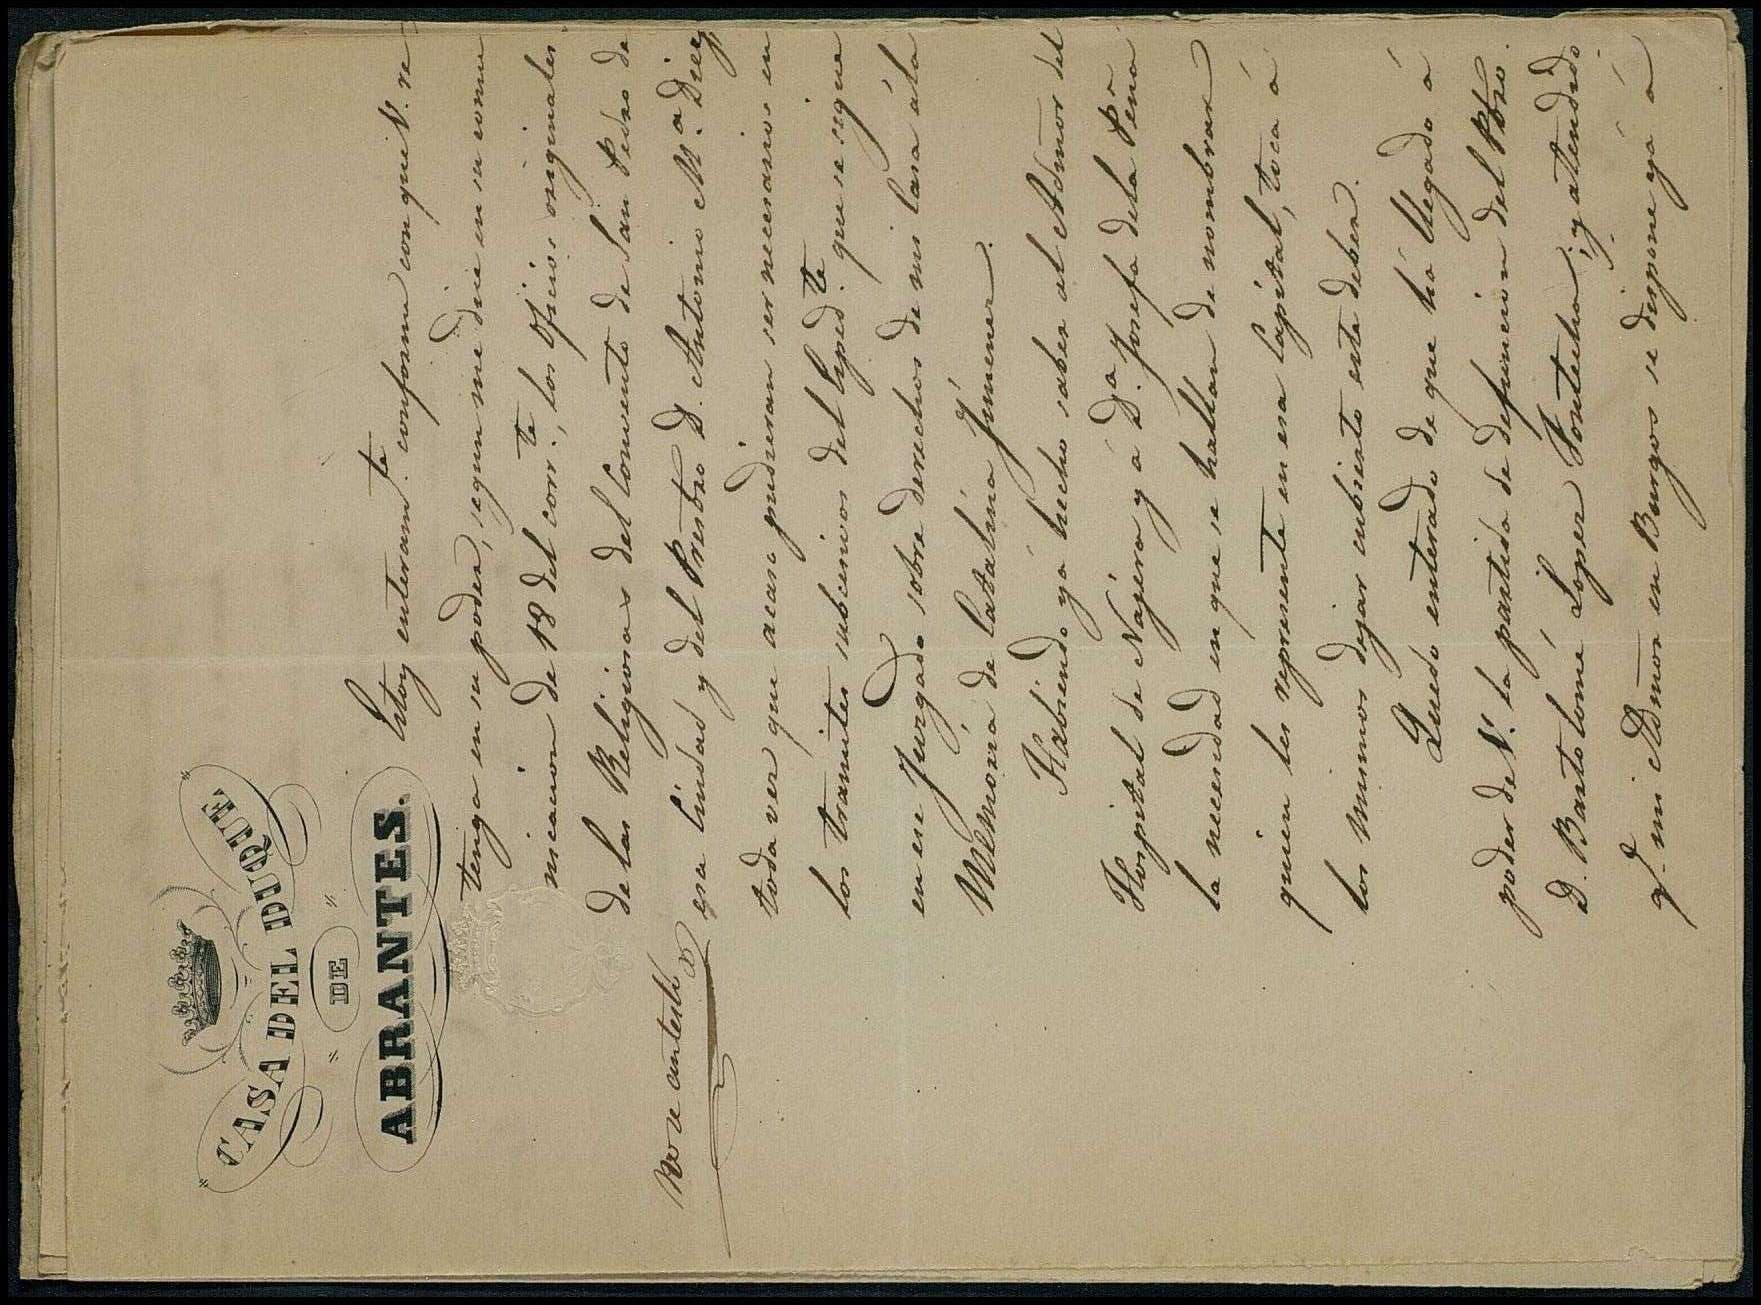 CASA DEL DUQUE
DE
ABRANTES.
Estoy enteram.te conforme con que V. re
tenga en su poder, segun me dice en su comu
nicacion de 18 del corr.te, los oficios originales
de las Religiosas del Convento de San Pedro de
esa Ciudad y del Presbro D. Antonio M.a Diez
toda vez que acaso pudieran ser necesarios en
los tramites subcesivos del Exped.te que se sigue
en ese Juzgado sobre derechos de mi Casa á la
Memoria de Catalina Jimenez.
Habiendo yá hecho saber al Admor del
Hospital de Nájera y á D.a Josefa de la Pena
la necesidad en que se hallan de nombrar
quien les represente en esa Capital, toca á
los mismos dejar cubierto este deber.
Quedo enterado de que há llegado á
poder de V. la partida de defuncion del Pbro.
D. Bartolomé Lopez Fontecha; y atendido
q.e mi Admor en Burgos se dispone yá á